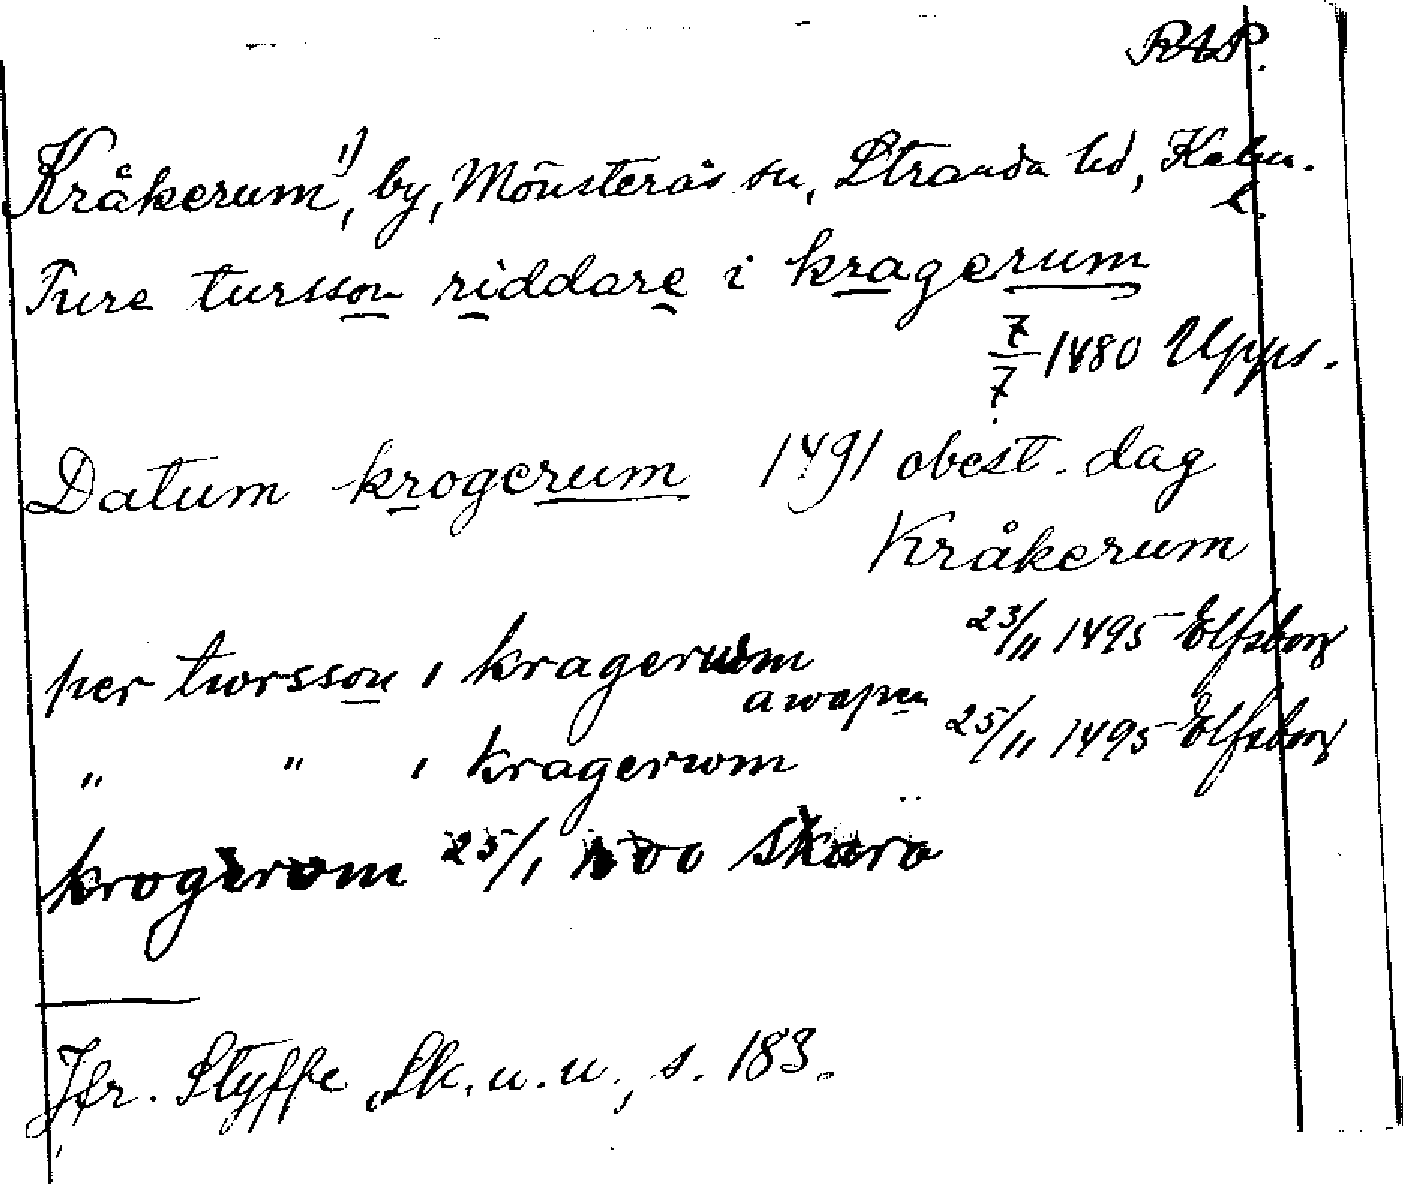 RAP.
Kråkerum 1), by, Mönsterås sn, Stranda hd, Kalm.
L.
Ture tursson riddare i kragerum
7/7 1480 Upps.
Datum krogerum 1491 obest. dag
Kråkerum
per tworsson i kragerwm 23/11 1495 Elfsborg
awapn
" " i kragerwm 25/11 1495 Elfsborg
krogerom 25/1 1500 Skara
Jfr. Styffe, Sk. u. u., s. 183.